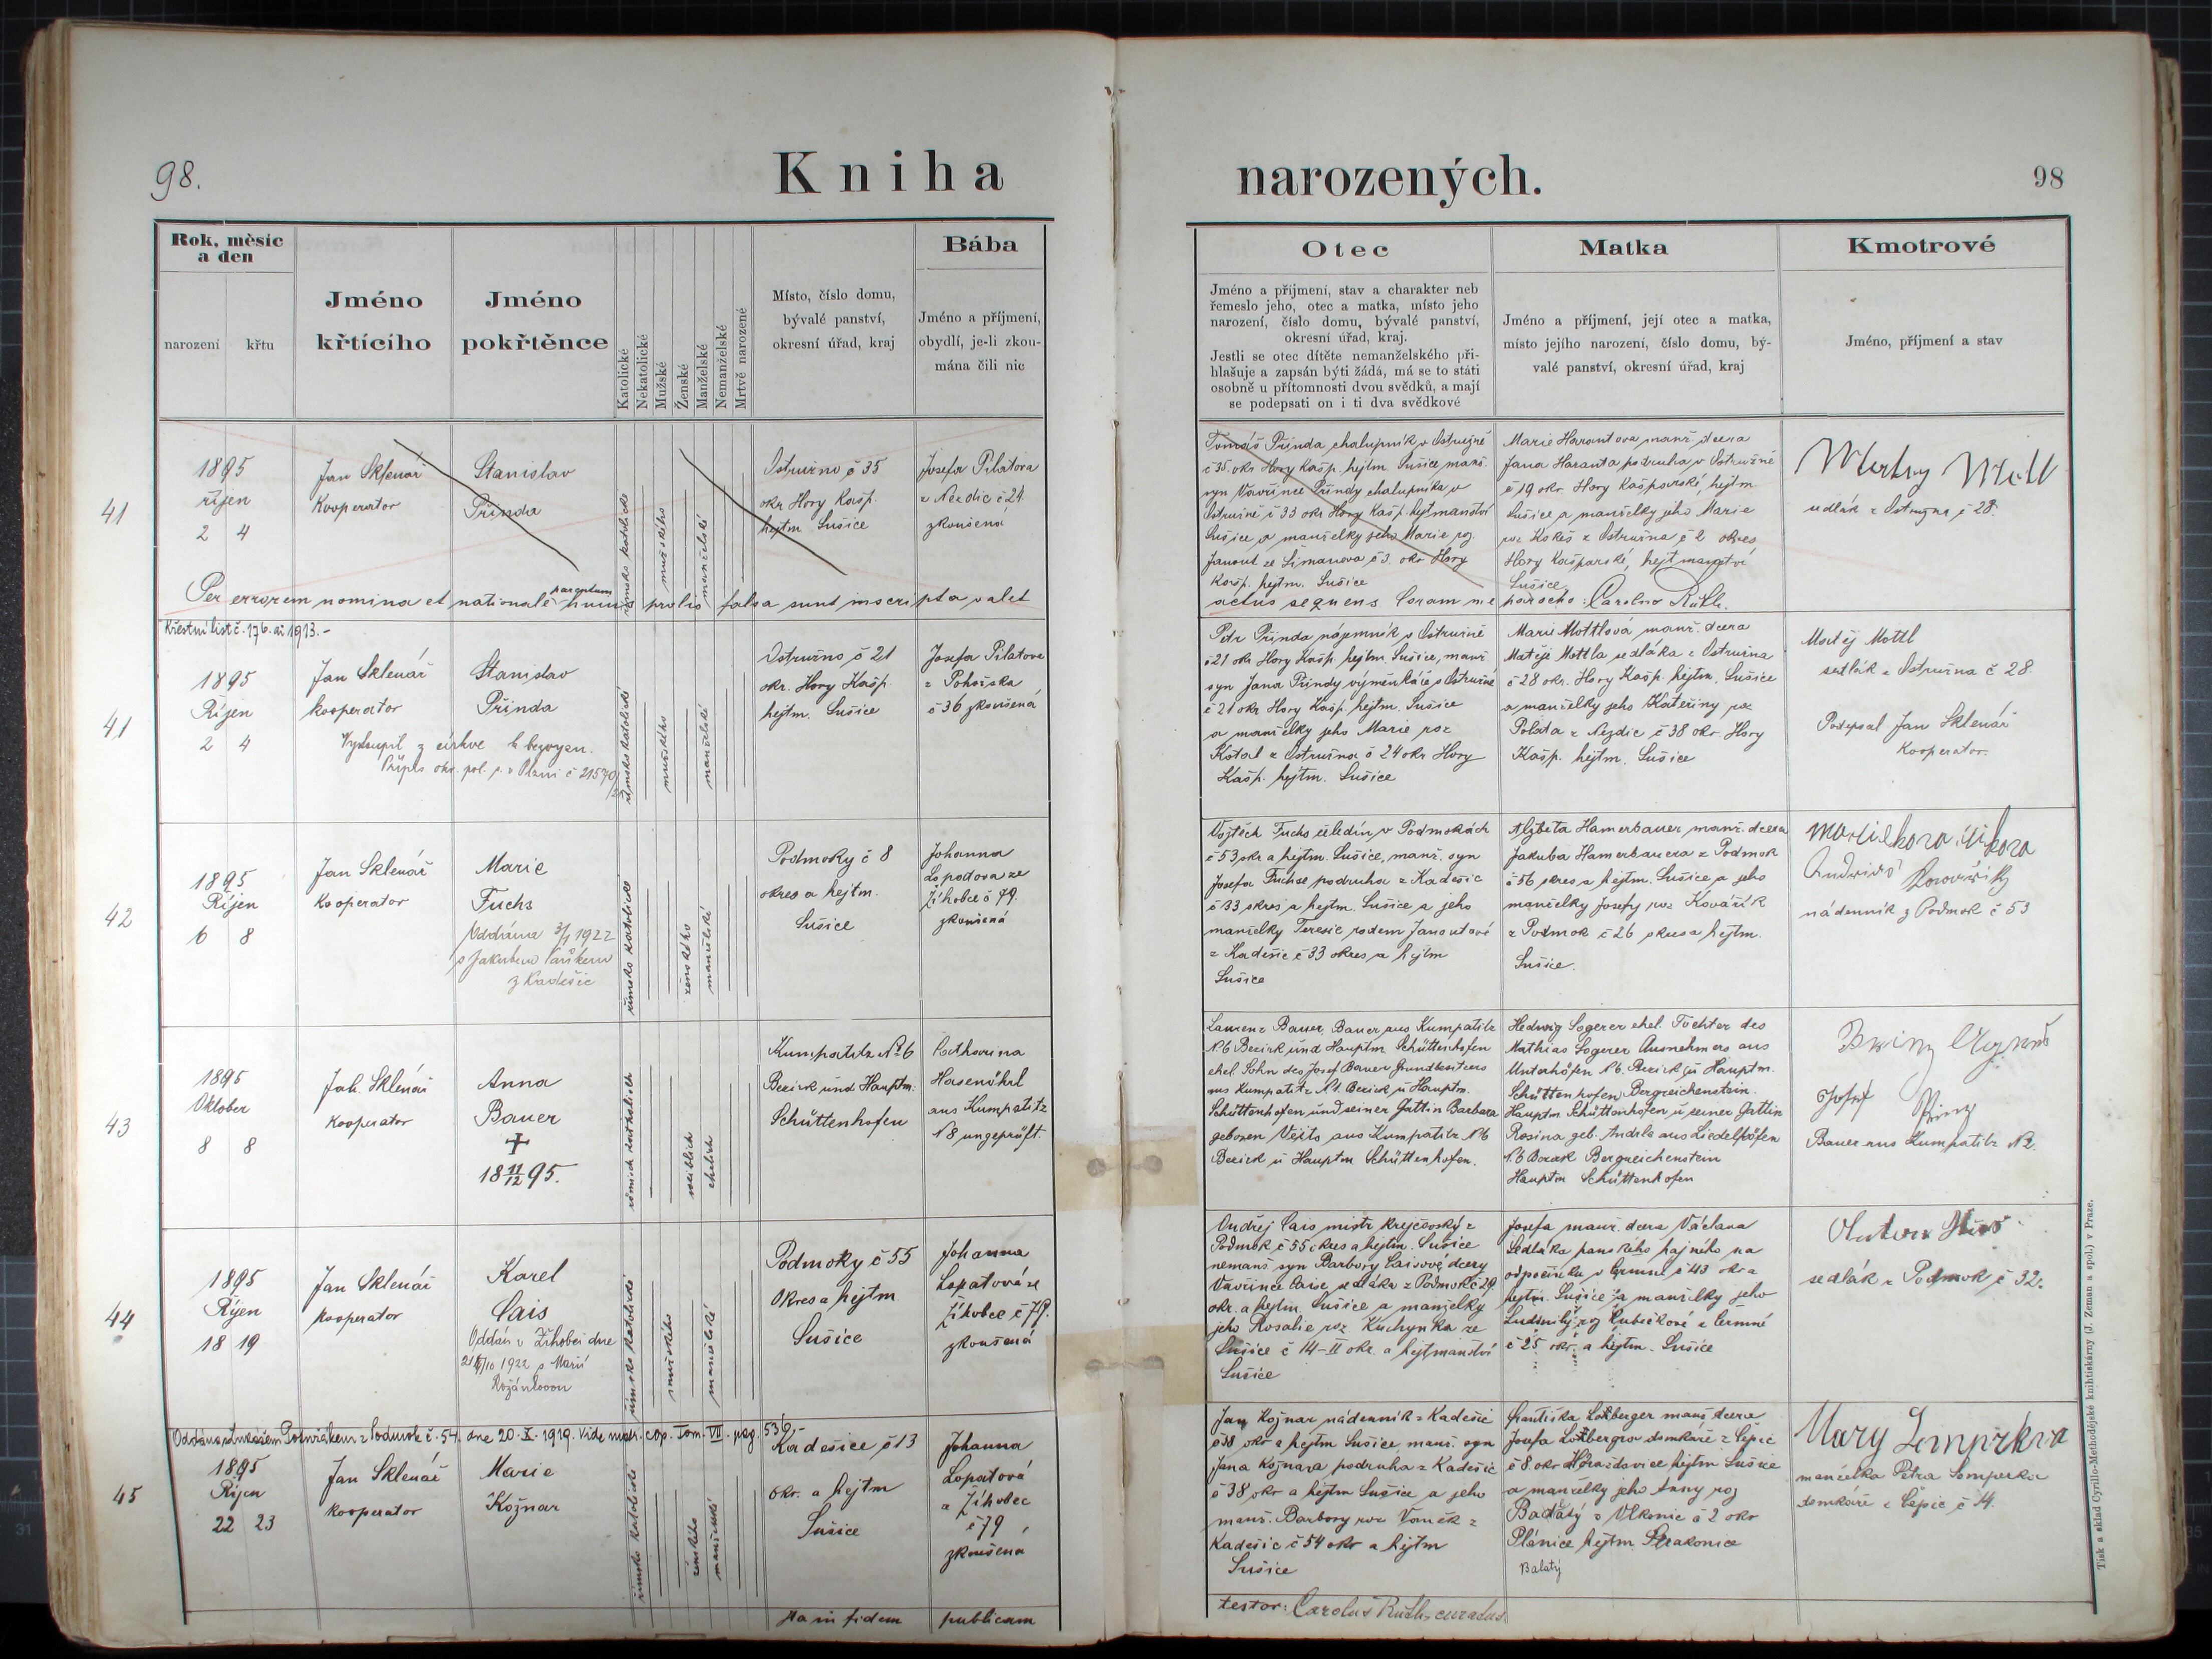 98.
Kniha
narozených.
98
Rok, měsíc
a den
narození
křtu
Jméno
křtícího
Jméno
pokřtěnce
Katolické
Nekatolické
Mužské
Ženské
Manželské
Nemanželské
Mrtvě narozené
Místo, číslo domu,
bývalé panství,
okresní úřad, kraj
Bába
Jméno a příjmení,
obydlí, je-li zkou-
mána čili nic
Otec
Jméno a příjmení, stav a charakter neb
řemeslo jeho, otec a matka, místo jeho
narození, číslo domu, bývalé panství,
okresní úřad, kraj.
Jestli se otec dítěte nemanželského při-
hlašuje a zapsán býti žádá, má se to státi
osobně u přítomnosti dvou svědků, a mají
se podepsati on i ti dva svědkové
Matka
Jméno a příjmení, její otec a matka,
místo jejího narození, číslo domu, bý-
valé panství, okresní úřad, kraj
Kmotrové
Jméno, příjmení a stav
41
1895
říjen
2 4
Jan Sklenář
Kooperator
Stanislav
Přinda
římsko katolické
mužského
manželské
Ostružno č 35
okr Hory Kašp.
hejtm Sušice
Josefa Pilatova
z Nezdic č 24.
zkoušená
Tomáš Přinda chalupník v Ostružně
č 35. okr. Hory Kašp. hejtm. Sušice manž.
syn Vavřince Přindy chalupníka v
Ostružně č 33 okr Hory Kašp. hejtmanství
Sušice a manželky jeho Marie roz
Janout ze Šimanova č 3. okr Hory
Kašp. hejtm. Sušice
Marie Harantova manž. dcera
Jana Haranta podruha v Ostružně
č 19 okr. Hory Kašparské, hejtm
Sušice a manželky jeho Marie
roz Kokeš z Ostružna č 2 okres
Hory Kašparské, hejtmanství
Sušice
sedlák z Ostružna č 28.
Per errorem nomina et nationale parentum hujus prolis falsa sunt inscripta valet
actus sequens Coram me parocho: Carolus Rüth.
Křestní list č. 176. ai 1913.-
41
1895
Říjen
2 4
Jan Sklenář
kooperator
Stanislav
Přinda
Vystoupil z církve k bezvyzn.
Přípis okr. pol. s. v Plzni č 21570
římsko katolické
mužského
manželské
Ostružno č 21
okr. Hory Kašp.
hejtm. Sušice
Josefa Pilatova
z Pohorska
č 36 zkoušená
Petr Přinda nájemník v Ostružně
č 21 okr Hory Kašp. hejtm. Sušice, manž.
syn Jana Přindy výměnkáře v Ostružně
č 21 okr Hory Kašp. hejtm. Sušice
a manželky jeho Marie roz
z Ostružna č 24 okr Hory
Kašp. hejtm. Sušice
Marie Mottlová manž. dcera
Matěje Mottla sedláka z Ostružna
č 28 okr. Hory Kašp. hejtm. Sušice
a manželky jeho Kateřiny roz
Polata z Nezdic č 38 okr. Hory
Kašp. hejtm. Sušice
Matěj Mottl
sedlák z Ostružna č 28.
Podepsal Jan Sklenář
Kooperator.
42
1895
Říjen
6 8
Jan Sklenář
Kooperator
Marie
Fuchs
Oddána 3/1 1922
s Jakubem
z Kadešic
římsko katolické
ženského
manželské
Podmoky č 8
okres a hejtm.
Sušice
Johanna
Lopatova ze
Žíhobce č 79.
zkoušená
Vojtěch Fuchs čeledín v Podmokách
č 53 okr a hejtm. Sušice, manž. syn
Josefa Fuchse podruha z Kadešic
č 33 okres a hejtm. Sušice a jeho
manželky Terezie rodem Janoutové
z Kadešic č 33 okres a hejtm
Sušice
Alžběta Hamerbauer manž. dcera
Jakuba Hamerbauera z Podmok
č 56 okres a hejtm. Sušice a jeho
manželky Josefy roz Kovářík
z Podmok č 26 okres a hejtm.
Sušice.
nádenník z Podmok č 53
43
1895
Oktober
8 8
Joh. Sklenář
Kooperator
Anna
Bauer
+
18 11/12 95.
römisch katholisch
weiblich
ehelich
Kumpatitz No 6
Bezirk und Hauptm.
Schüttenhofen
Catharina
Hasenöhrl
aus Kumpatitz
N8 ungeprüft.
Laurenz Bauer, Bauer aus Kumpatitz
N.6 Bezirk und Hauptm Schüttenhofen
ehel. Sohn des Josef Bauer Grundbesitzers
aus Kumpatitz N.1. Bezirk u Hauptm.
Schüttenhofen und seiner Gattin Barbara
geboren Veits aus Kumpatitz N6
Bezirk u Hauptm Schüttenhofen.
Hedwig Sogerer ehel. Tochter des
Mathias Sogerer Ausnehmers aus
Unterhöfen N 6. Bezirk u Hauptm.
Schüttenhofen Bergreichenstein.
Hauptm Schüttenhofen u seiner Gattin
Rosina geb. aus Liedelhöfen
N.6 Bezirk Bergreichenstein
Hauptm Schüttenhofen
Josef
Bauer aus Kumpatitz N2.
44
1895
Říjen
18 19
Jan Sklenář
kooperator
Karel
Cais
Oddán v Žihobci dne
1922 s Marií
římsko katolické
mužského
manželské
Podmoky č 55
Okres a hejtm
Sušice
Johanna
Lopatová ze
Žíhobce č 79.
zkoušená
Ondřej Cais mistr krejčovský z
Podmok č 55 okres a hejtm. Sušice
nemanž syn Barbory Caisové dcery
Vavřince Caise sedláka z Podmok č 29
okr. a hejtm. Sušice a manželky
jeho Rosalie roz. Kuchynka ze
Sušice č 14-II okr. a hejtmanství
Sušice
Josefa manž. dcera Václava
Sedláka panského hajného na
odpočinku v Čermné č 43 okr a
hejtm. Sušice a manželky jeho
Ludmily roz Kubíčkové z Čermné
č 25 okr. a hejtm. Sušice
sedlák z Podmok č 32.
Oddána s dne 20. X. 1919. Vide matr. cop. Tom. VII. pag. 536.-
45
1895
Říjen
22 23
Jan Sklenář
kooperator
Marie
Kožnar
římsko katolické
ženského
manželské
Kadešice č 13
okr. a hejtm
Sušice
Johanna
Lopatová
z Žíhobec
č 79
zkoušená
Jan Kožnar nádenník z Kadešic
č 38 okr a hejtm Sušice, manž. syn
Jana Kožnara podruha z Kadešic
č 38 okr a hejtm Sušice a jeho
manž. Barbory roz Vaněk z
Kadešic č 54 okr a hejtm
Sušice
Františka manž dcera
Josefa domkáře z Čepic
č 8 okr Horažďovice hejtm Sušice
a manželky jeho Anny roz
z Vlkonic č 2 okr
Plánice hejtm Strakonice
Balatý
manželka Petra
domkáře z Čepic č 14.
Ita in fidem publicam
testor: Carolus Rüth, curatus
Tisk a sklad Cyrillo-Methodějské knihtiskárny (J. Zeman a spol.) v Praze.